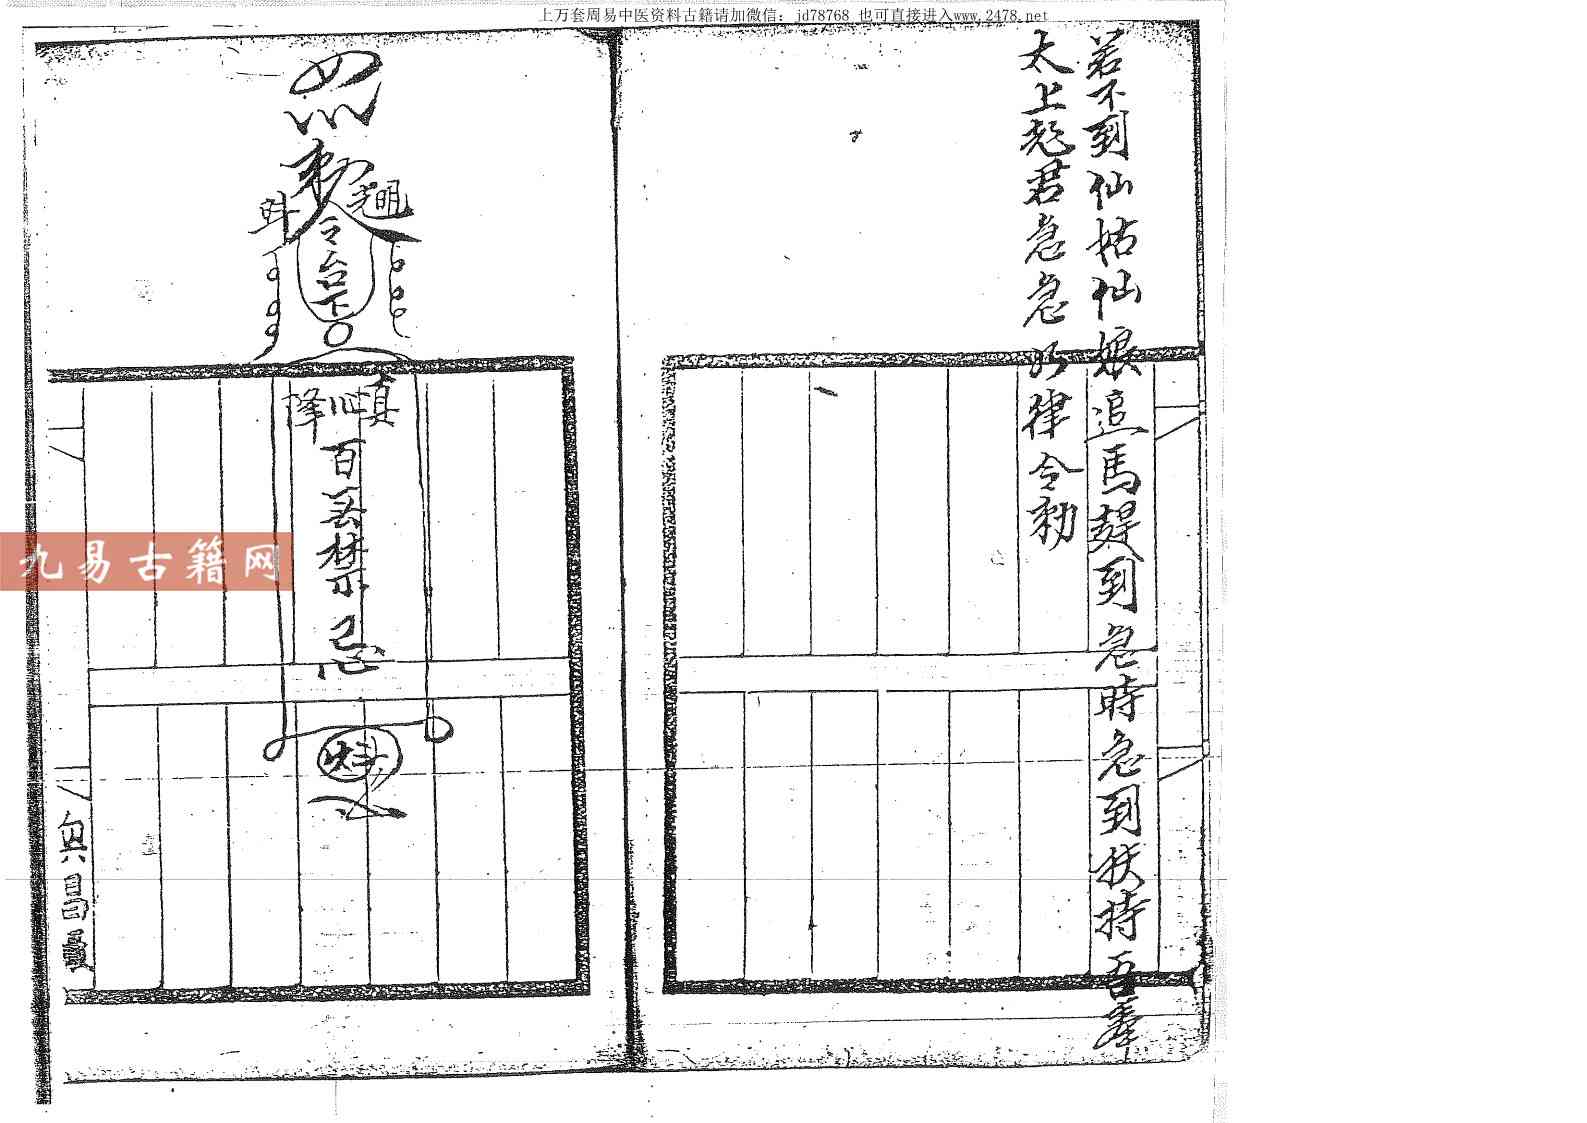 上万套周易中医资料古籍请加微信：jd78768 也可直接进入www.2478.net
若不到仙姑仙娘追馬趕到急時急到扶持吾奉
太上老君急急如律令勅
勅令台下
真心降
百無禁忌
九易古籍网